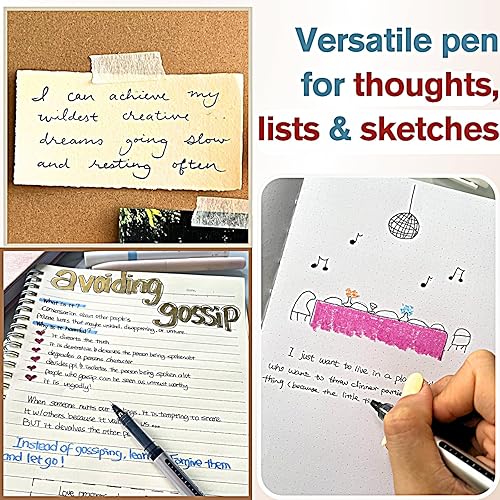 Versatile pen
for thoughts,
lists & sketches
I can achieve my
wildest creative
dreams going slow
and resting often
avoiding
gossip
What is it?
Conversation about other people's
private lives that maybe unkind, disapproving, or untrue.
Why is it harmful?
it distorts the truth
it is demeaning & devalues the person being spoken about
degrades a persons character
people who gossip can be seen as untrust worthy
it is ungodly!
When someone
it is tempting to share
it w/others because it
BUT it devalues the other
Instead of gossiping,
Forgive them
and let go!
I just want to live in a
who want to throw dinner
thing (because the little